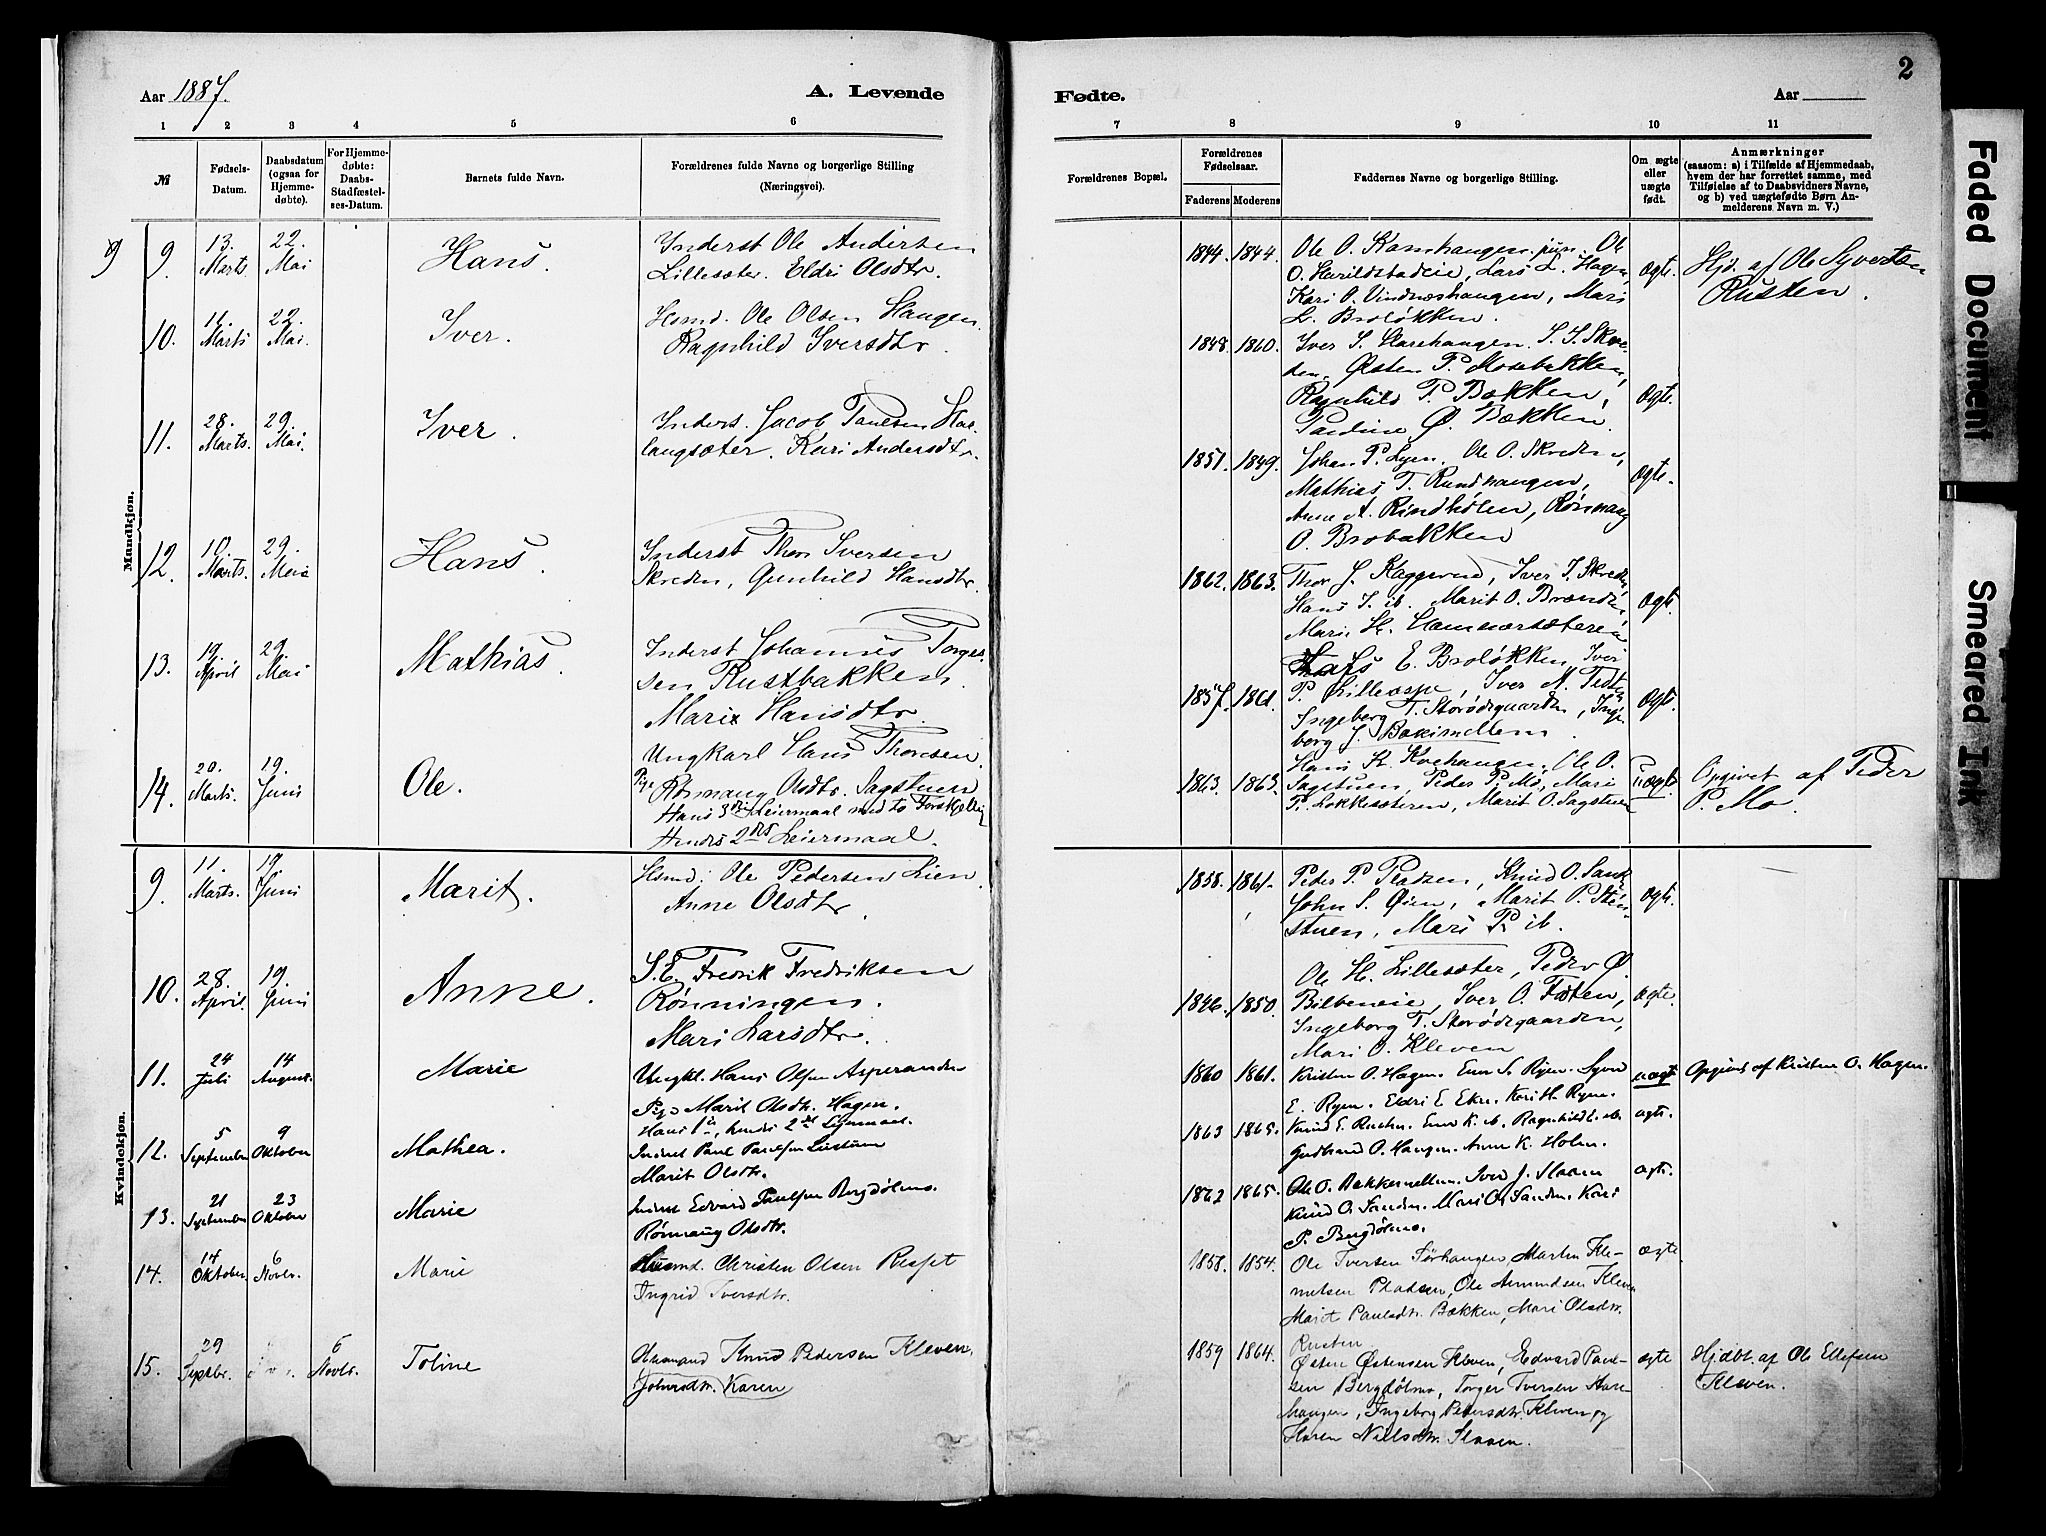 2
Aar 1887.
A. Levende
Fødte.
Aar
1 2 3 4 5 6
7 8 9 10 11
№
Fødsels-
Datum.
Daabsdatum
(ogsaa for
Hjemme-
døbte).
For Hjemme-
døbte:
Daabs-
Stadfæstel-
ses-Datum.
Barnets fulde Navn.
Forældrenes fulde Navne og borgerlige Stilling
(Næringsvei).
Forældrenes Bopæl.
Forældrenes
Fødselsaar.
Faderens Moderens
Faddernes Navne og borgerlige Stilling.
Om ægte
eller
uægte
født.
Anmærkninger
(saasom: a) i Tilfælde af Hjemmedaab,
hvem der har forrettet samme, med
Tilføielse af to Daabsvidners Navne,
og b) ved uægtefødte Børn An-
melderens Navn m. V.)
Mandkjøn.
9 9. 13. Marts. 22. Mai Hans.
Inderst Ole Andersen
Lillesæter. Eldri Olsdtr.
1844. 1844.
Ole O. Kamhaugen jun. Ole
O. Harildstadeie, Lars L. Hagen,
Kari O. Vindnæshaugen, Mari
L. Broløkken.
Ægte.
Hjd. af Ole Syversen
Rusten.
10. 11. Marts 22. Mai. Iver.
Hsmd. Ole Olsen Haugen.
Ragnhild Iversdtr.
1848. 1860.
Iver S. Harehaugen. I. I. Skre-
den, Østen P. Mosebakken,
Ragnhild P. Bækken,
Pauline Ø. Bækken.
Ægt.
11. 28. Marts. 29. Mai. Iver.
Inderst. Jacob Paulsen
langsæter. Kari Andersdtr.
1851. 1849.
Johan P. Lyen. Ole O. Skreden,
Mathias T. Rundhaugen,
Anne A. Rindhølen, Rønnaug
O. Brobakken
Ægte.
12. 10. Marts. 29. Mai Hans.
Inderst Thor Iversen
Skreden, Gunhild Hansdtr.
1862. 1863.
Thor J. Kaggerud, Iver I. Skreden,
Hans I. ib. Marit O. Brenden,
Mari H. Hammersæteren
Ægt.
13. 19. April 29. Mai Mathias.
Inderst Johannes Torger-
sen Rustbakken.
Mari Hansdtr.
1857. 1861.
Lars E. Broløkken, Iver
P. Lilleæspe, Iver M.
Ingeborg T. Storødegaarden, Inge-
borg J. Bakimellem.
Ægt.
14. 20. Marts. 19. Juni Ole.
Ungkarl Hans Thoresen
Pige Rønnaug Olsdtr. Sagstuen
Hans 3die Leiermaal med to Forskjellig
Hendes 2det Leiermaal.
1863. 1863.
Hans H. Kvehaugen, Ole O.
Sagstuen, Peder P. Mo, Mari
P. Løkkesæteren, Marit O. Sagstuen
Uægt.
Opgivet af Peder
P. Mo.
Kvindekjøn.
9. 11. Marts. 19. Juni Marit.
Hsmd. Ole Pedersen Lien.
Anne Olsdtr.
1858. 1861.
Peder P. Pladsen, Knud O.
John S. Øien, Marit P. Sten-
stuen, Mari P. ib.
Ægt.
10. 28. April. 19. Juni Anne.
S.E. Fredrik Fredriksen
Rønningen.
Mari Larsdtr.
1846. 1850.
Ole H. Lillesæter, Peder Ø.
Bilbeneie, Iver O. Fosten,
Ingeborg T. Storødegaarden,
Mari O. Kleven
Ægte.
11. 24 Juli 14 August. Marie
Ungkl. Hans Olsen Asperanden
Pige Marit Olsdtr. Hagen.
Hans 1ste, hendes 2det Leiermaal.
1860 1861.
Kristen O. Hagen. Even S. Ryen. Syver
E. Ryen. Eldri E Ekre. Kari H. Ryen.
uægt
Opgivet af Kristen O. Hagen.
12. 5 September 9 Oktober Mathea.
Inderst Paul Paulsen
Marit Olsdtr.
1863 1865.
Knud E. Rusten. Even K. ib. Ragnhild E. ib.
Gudbrand O. Haugen. Anne K. Holen.
ægt.
13. 21 September 23 Oktober Marie
Inderst Edvard Paulsen Bergdølmo.
Rønnaug Olsdtr.
1862 1865.
Ole O. Bakkemellem. Iver J. Slaaen
Knud O. Sanden. Mari O. Sanden. Kari
P. Bergdølmo.
ægt.
14. 14 Oktober. 6 Novbr. Marie
Husmd. Christen Olsen Ruset
Ingrid Iversdtr.
1858. 1854.
Ole Iversen Førhaugen, Martin Kle-
metsen Pladsen, Ole Amundsen Kleven
Marit Paulsdtr. Bækken, Mari Olsdtr.
Rusten
ægte
15. 29 Septbr. 6 Novbr. Toline
Husmand Knud Pedersen Kleven.
Johnsdtr. Karen
1859 1864.
Østen Østensen Kleven, Edvard Paul-
sen Bergdølmo, Torger Iversen Hare-
haugen, Ingeborg Pedersdtr. Kleven og
Karen Nielsdtr. Slaaen.
ægte
Hjdbt. af Ole Ellefsen
Kleven.
Faded Document
Smeared Ink